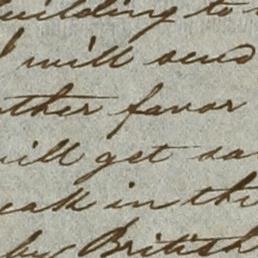 building to
I will send
other favor
will get sa
eak in the
by British